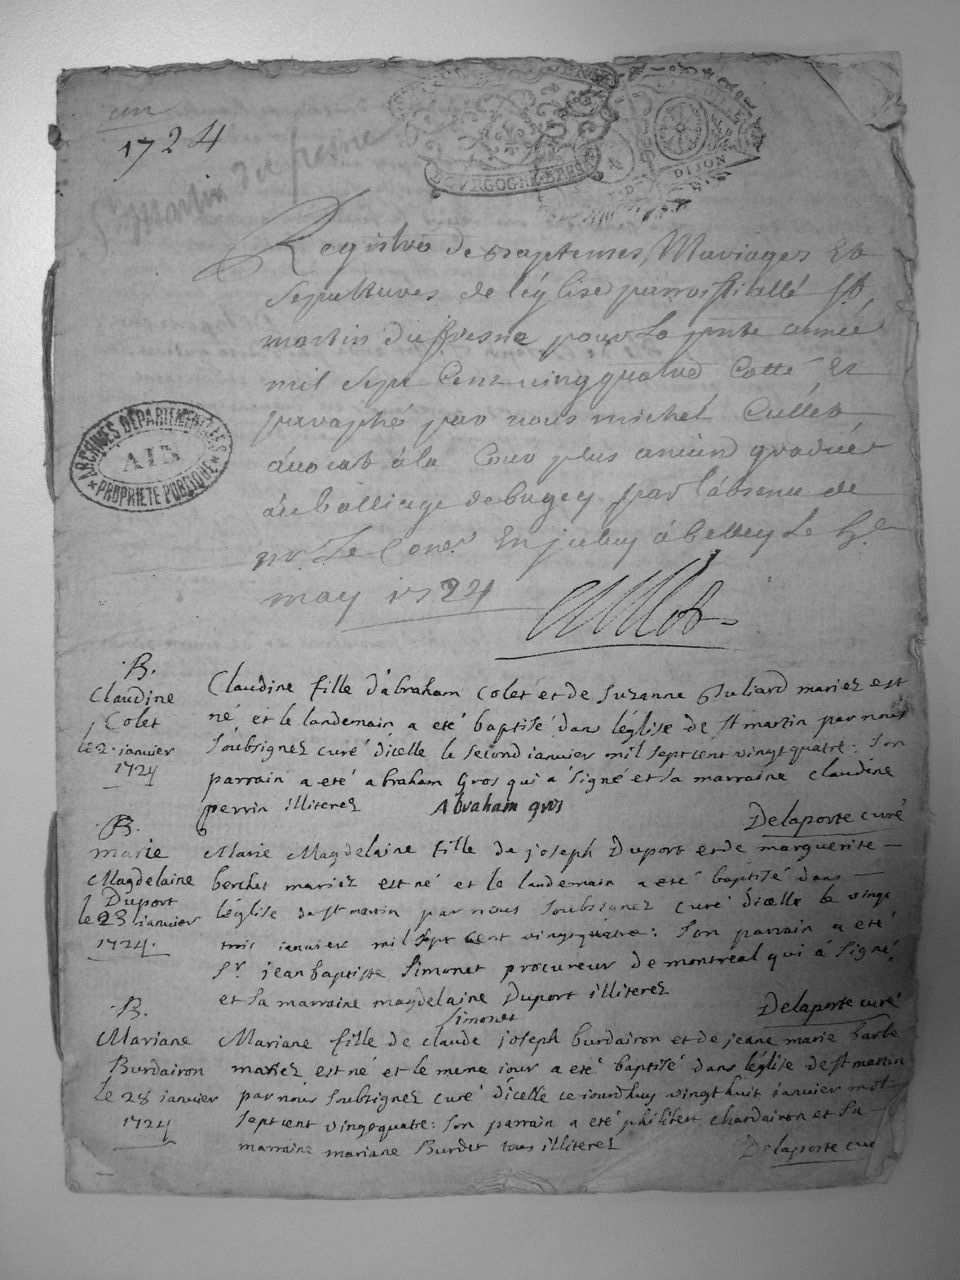 un
1724
St martin du fresne
BOURGOGNE BRESSE
DIJON
Registres de Baptemes, Mariages Et
Sepultures de l'église parroissialle St
martin du fresne pour la pnte année
mil sept Cent vingt quatre Cotté Et
paraphé par nous michel Cullet
avocat à la Cour plus ancien gradué
au balliage de bugey par l'absence de
mr. Le Coner. En jceluy à belley le
may 1724
Cullet
ARCHIVES DÉPARTEMENTALES
AIN
PROPRIÉTÉ PUBLIQUE
B.
Claudine
Colet
le 2. janvier
1724
Claudine fille d'abraham Colet et de Suzanne Juliard mariez est
né et le landemain a eté baptisé dans l'église de st martin par nous
soubsignez curé d'icelle le second janvier mil sept cent vingt quatre: Son
parrain a eté abraham Gros qui a signé et sa marraine claudine
perrin illiterez
Abraham gros
Delaporte curé
B.
marie
Magdelaine
Duport
le 23 janvier
1724.
Marie Magdelaine fille de joseph Duport et de marguerite
berchet mariez est né et le landemain a eté baptisé dans
l'église de st martin par nous soubsignez curé d'icelle le vingt
trois janvier mil sept cent vingt quatre: Son parrain a eté
Sr. jean baptiste Simonet procureur de montreal qui à signé,
et sa marraine magdelaine Duport illiterez
Simonet
Delaporte curé
B.
Mariane
Burdairon
le 28 janvier
1724
Mariane fille de claude joseph burdairon et de jeane marie barbe
mariez est né et le meme jour a eté baptisé dans l'église de st martin
par nous soubsignez curé d'icelle ce jourdhuy vingt huit janvier mil
sept cent vingt quatre: Son parrain a eté philibert chardairon et sa
marraine mariane Burdet tous illiterez
Delaporte curé